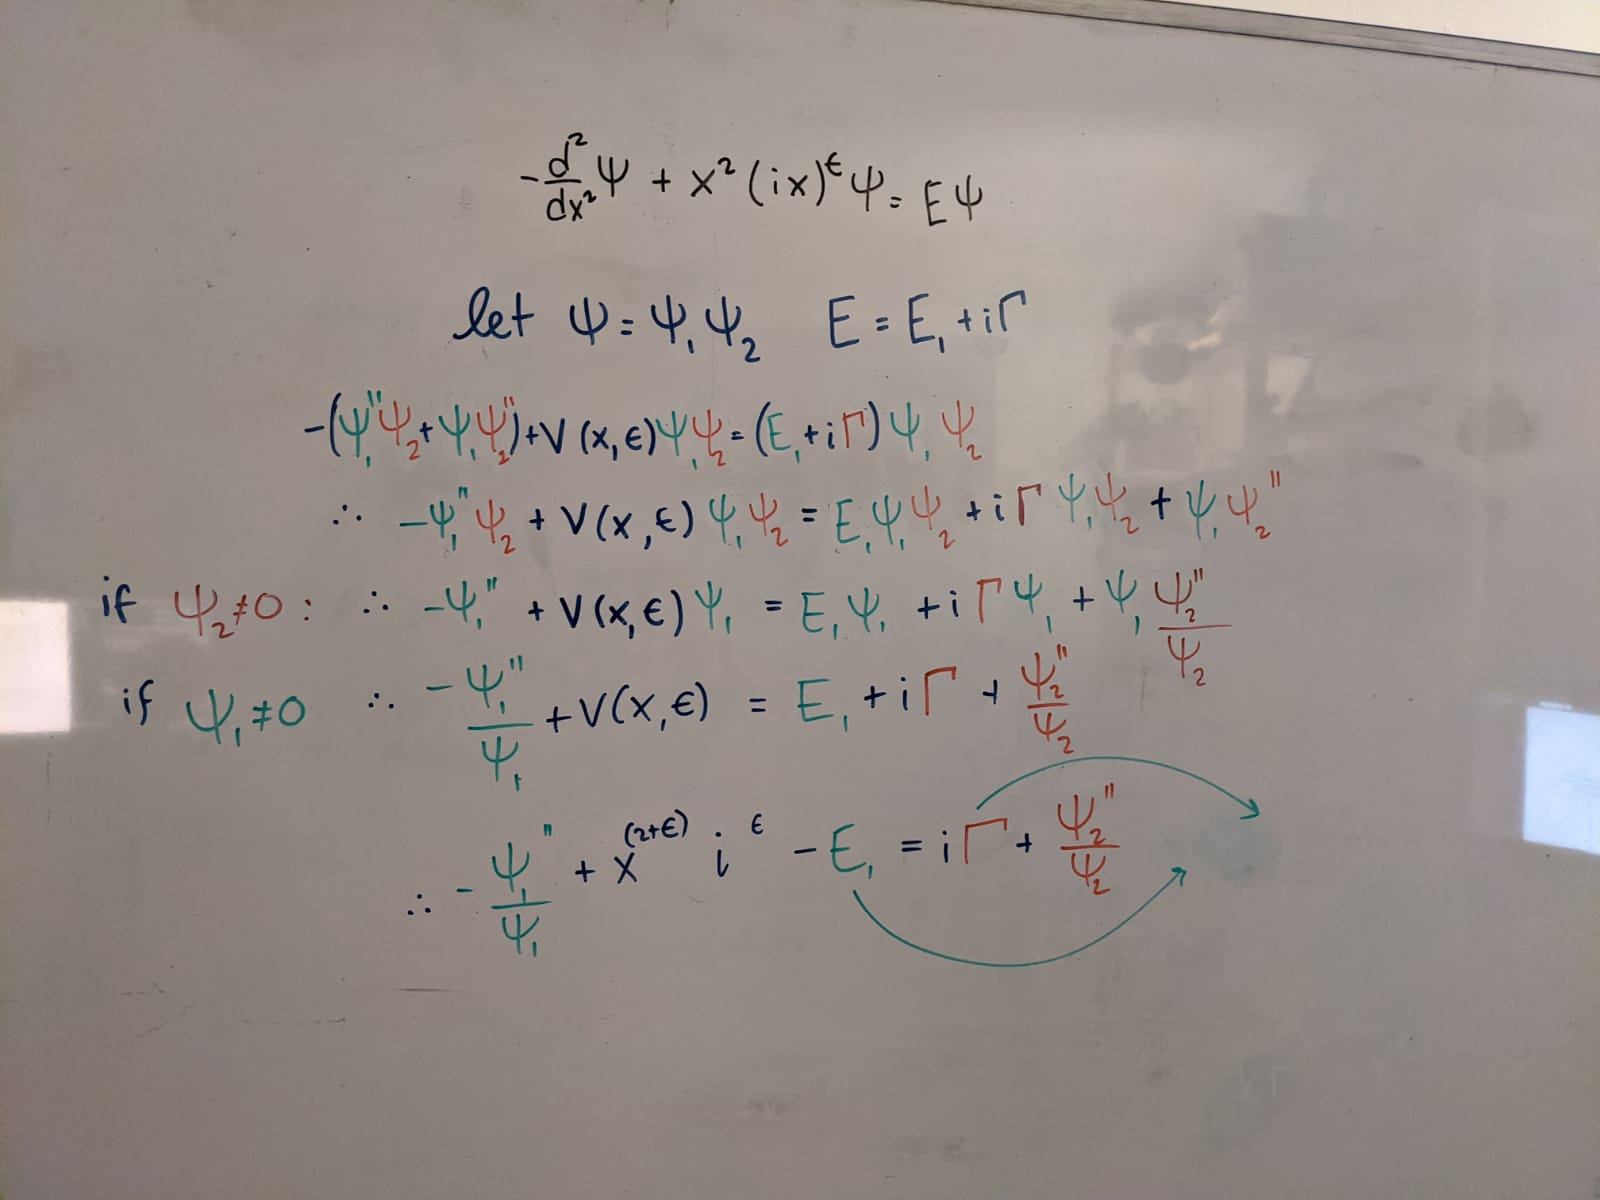 -d²/dx² Ψ + x² (ix)^ϵ Ψ = EΨ
let Ψ = Ψ₁Ψ₂ E = E₁ + iΓ
-(Ψ₁''Ψ₂ + Ψ₁Ψ₂'') + V(x,ϵ)Ψ₁Ψ₂ = (E₁ + iΓ)Ψ₁Ψ₂
∴ -Ψ₁''Ψ₂ + V(x,ϵ)Ψ₁Ψ₂ = E₁Ψ₁Ψ₂ + iΓΨ₁Ψ₂ + Ψ₁Ψ₂''
if Ψ₂≠0: ∴ -Ψ₁'' + V(x,ϵ)Ψ₁ = E₁Ψ₁ + iΓΨ₁ + Ψ₁ Ψ₂''/Ψ₂
if Ψ₁≠0 ∴ -Ψ₁''/Ψ₁ + V(x,ϵ) = E₁ + iΓ + Ψ₂''/Ψ₂
∴ -Ψ₁''/Ψ₁ + x^(2+ϵ) i^ϵ - E₁ = iΓ + Ψ₂''/Ψ₂